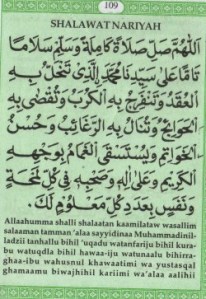 109
SHALAWAT NARIYAH
اَللّٰهُمَّ صَلِّ صَلَاةً كَامِلَةً وَسَلِّمْ سَلَامًا
تَامًّا عَلَى سَيِّدِنَا مُحَمَّدٍ الَّذِي تَنْحَلُّ بِهِ
الْعُقَدُ وَتَنْفَرِجُ بِهِ الْكُرَبُ وَتُقْضَى بِهِ
الْحَوَائِجُ وَتُنَالُ بِهِ الرَّغَائِبُ وَحُسْنُ
الْخَوَاتِمِ وَيُسْتَسْقَى الْغَمَامُ بِوَجْهِهِ
الْكَرِيْمِ وَعَلَى اٰلِهِ وَصَحْبِهِ فِي كُلِّ لَمْحَةٍ
وَنَفَسٍ بِعَدَدِ كُلِّ مَعْلُوْمٍ لَكَ
Allaahumma shalli shalaatan kaamilataw wasallim
salaaman tamman 'alaa sayyidinaa Muhammadinil-
ladzii tanhallu bihil 'uqadu watanfariju bihil kura-
bu watuqdla bihil hawaa-iju watunaalu bihirra-
ghaa-ibu wahusnul khawaatimi wa yustasqal
ghamaamu biwajhihil kariimi wa'alaa aalihii